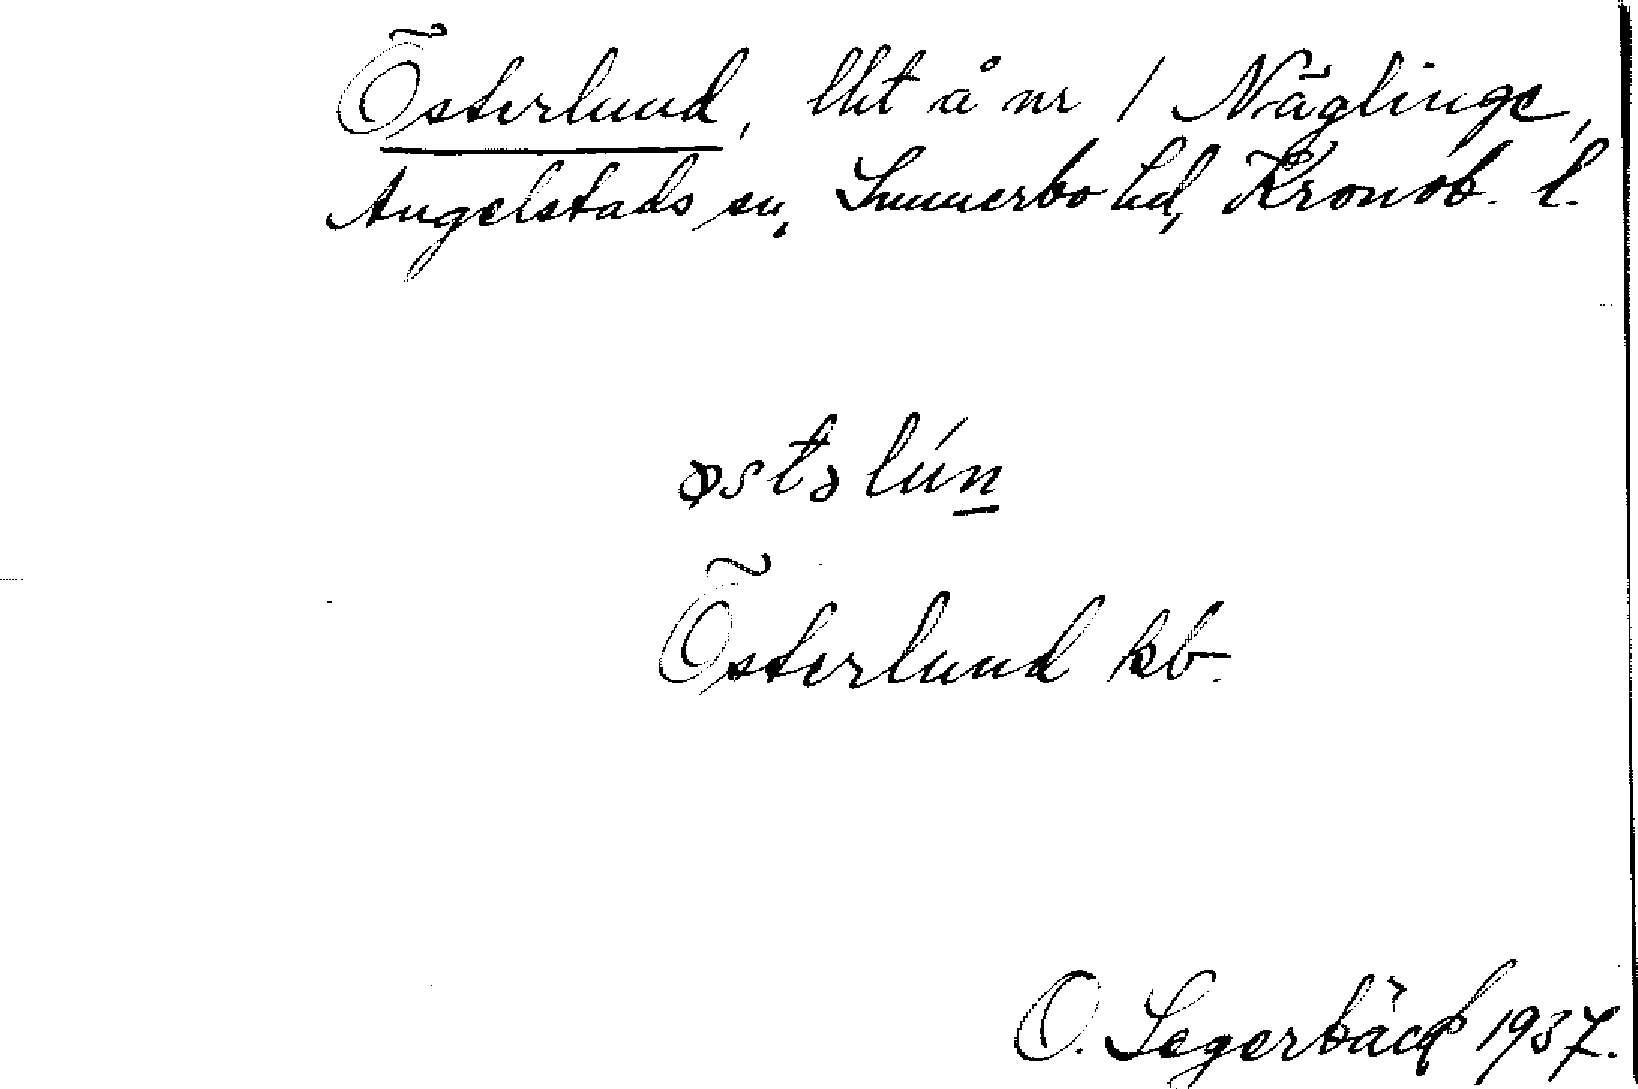 Österlund, lht å nr 1 Näglinge,
Angelstads sn, Sunnerbo hd, Kronob. l.
østəlún
Österlund kb.
O. Segerbäck 1937.